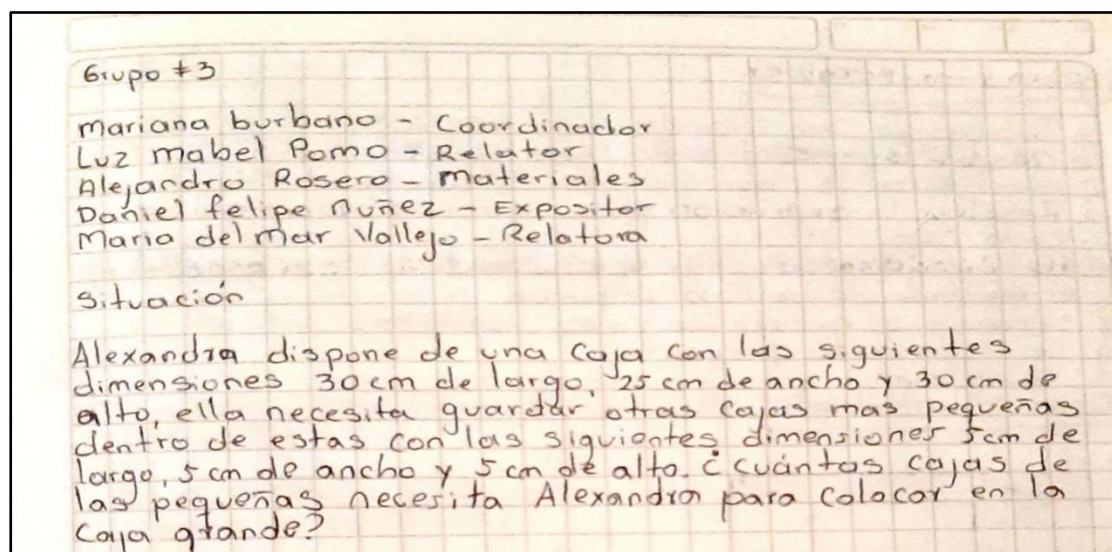 Grupo #3
mariana burbano - Coordinador
Luz mabel Pomo - Relator
Alejandro Rosero - materiales
Daniel felipe nuñez - Expositor
Maria del mar Vallejo - Relatora
Situación
Alexandra dispone de una caja con las siguientes
dimensiones 30 cm de largo, 25 cm de ancho y 30 cm de
alto, ella necesita guardar otras cajas mas pequeñas
dentro de estas con las siguientes dimensiones 5cm de
largo, 5 cm de ancho y 5 cm de alto. ¿cuántas cajas de
las pequeñas necesita Alexandra para colocar en la
caja grande?